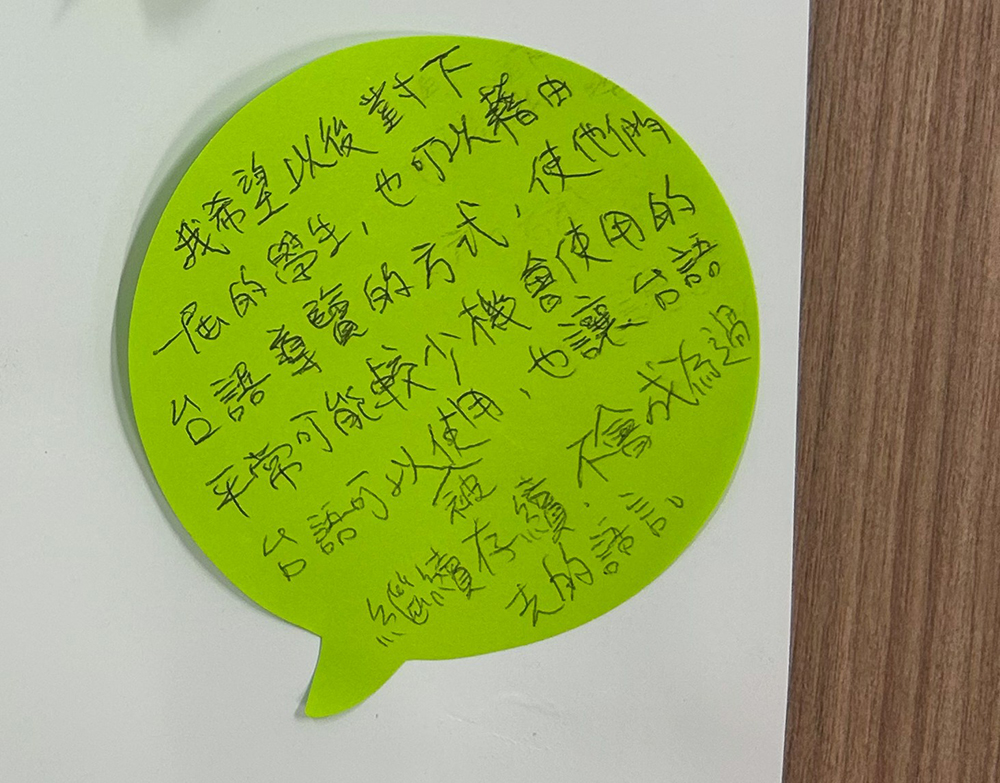 我希望以後對下
一屆的學生，也可以藉由
台語導覽的方式，使他們
平常可能較少機會使用的
台語可以使用，也讓台語
被
繼續存續，不會成為過
去的語言。